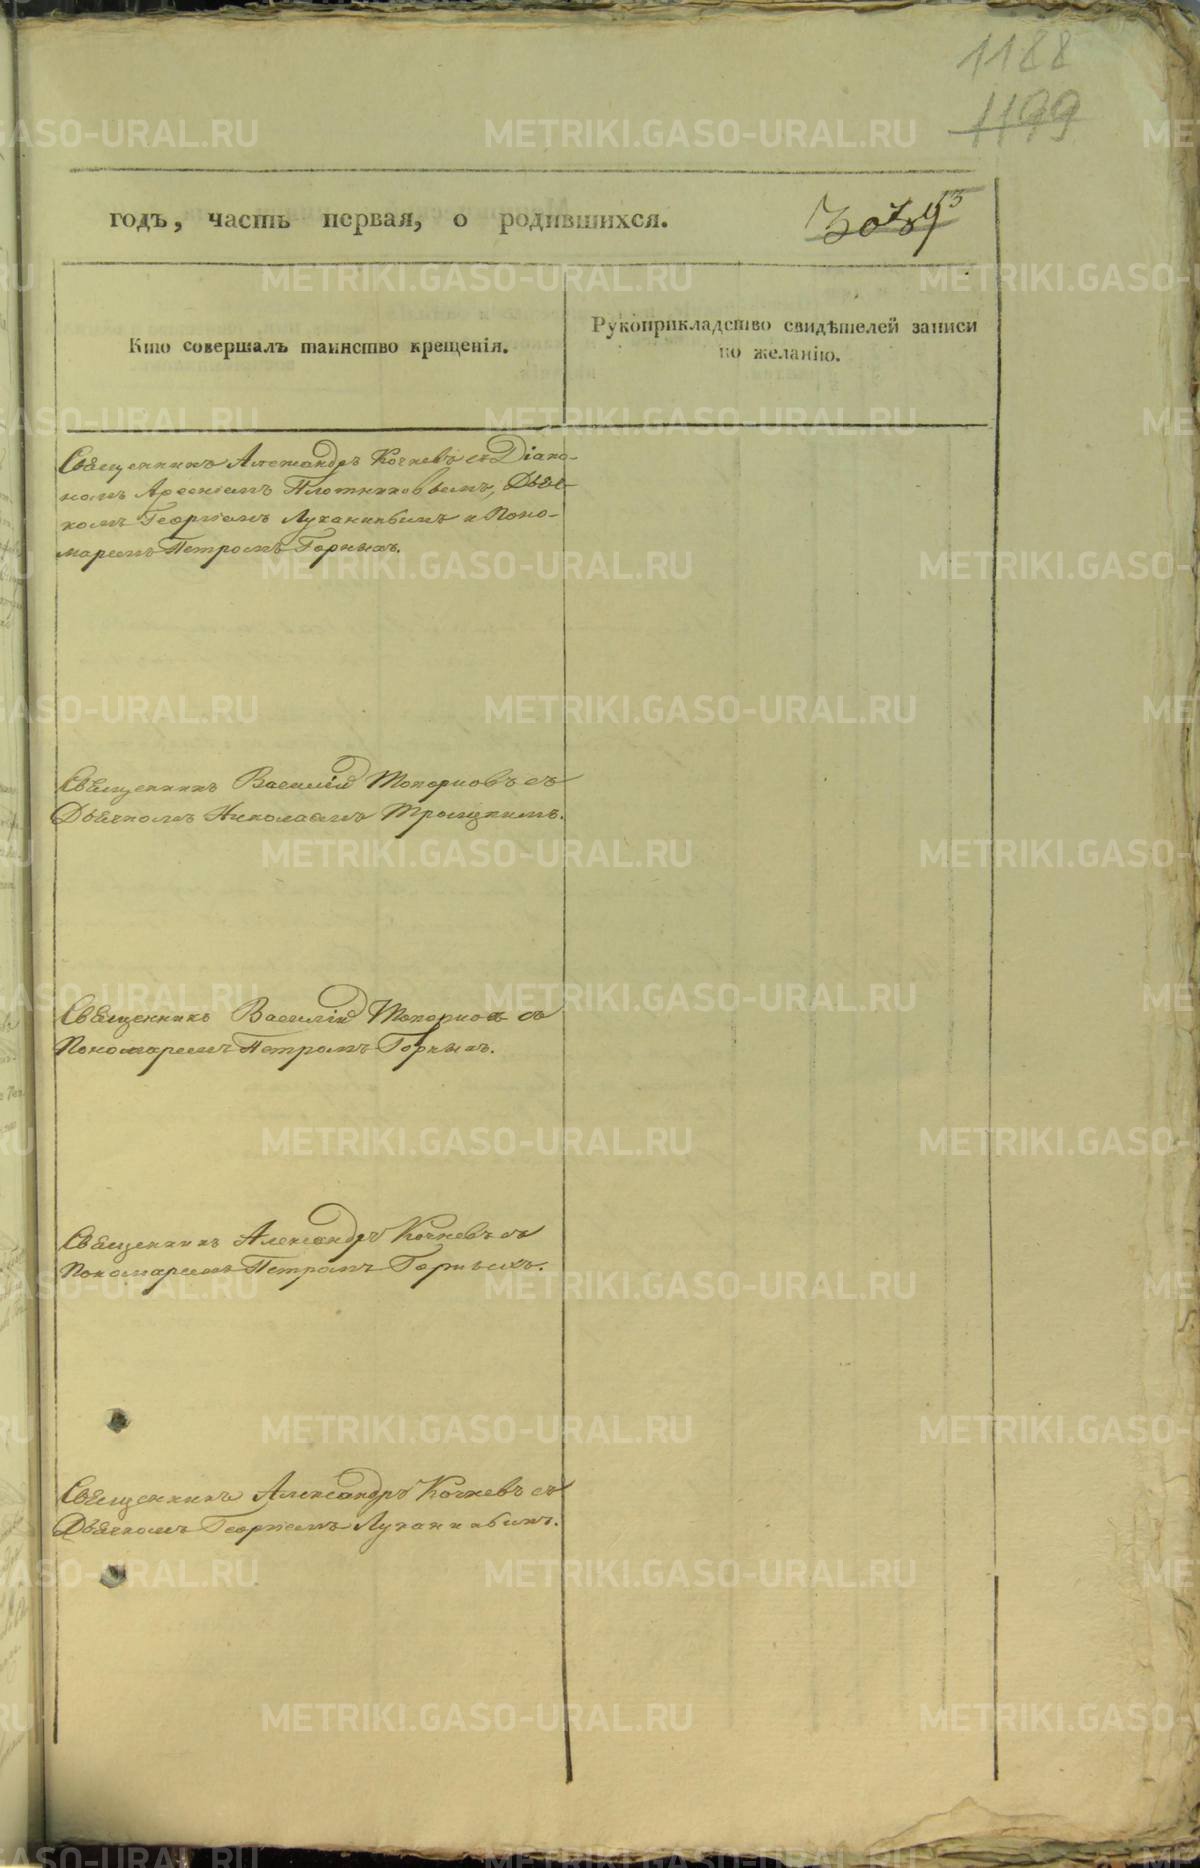 1188
1199
годъ, часть первая, о родившихся.
Кто совершалъ таинство крещенія.
Рукоприкладство свидѣтелей записи
по желанію.
Священникъ Александръ Кочневъ съ Діако-
номъ Арсеніемъ Плотниковымъ, Дьяч-
комъ Георгіемъ Луканинымъ и Поно-
маремъ Петромъ Горныхъ.
Священникъ Василій Топорковъ съ
Дьячкомъ Николаемъ Троицкимъ.
Священникъ Василій Топорковъ съ
Пономаремъ Петромъ Горныхъ.
Священникъ Александръ Кочневъ съ
Пономаремъ Петромъ Горныхъ.
Священникъ Александръ Кочневъ съ
Дьячкомъ Георгіемъ Луканинымъ.
METRIKI.GASO-URAL.RU